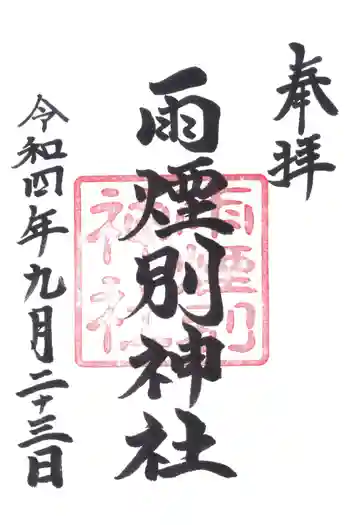 奉拝
雨煙別神社
雨煙別
神社
令和四年九月二十三日